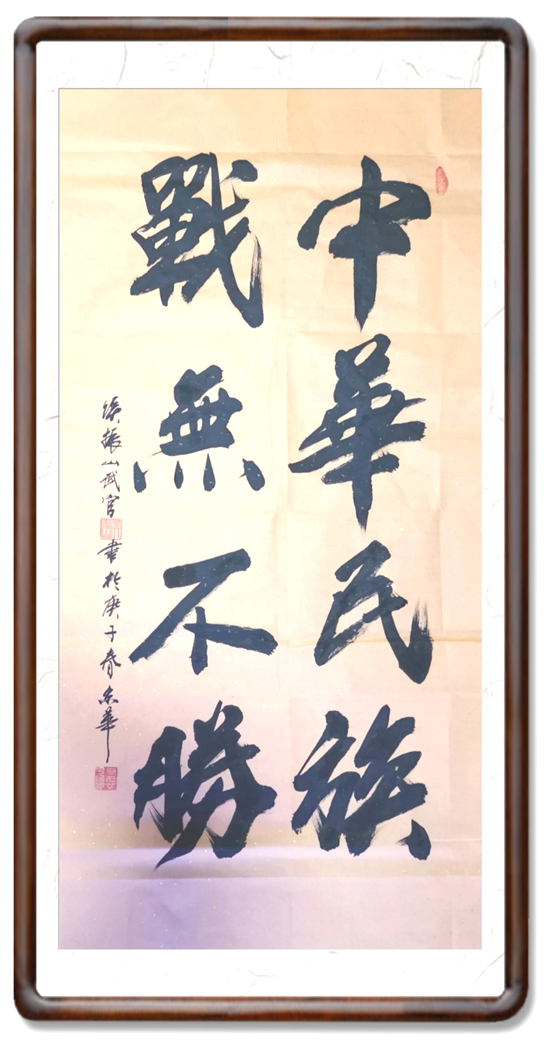 中華民族
戰無不勝
張山武官
書於庚子春京華